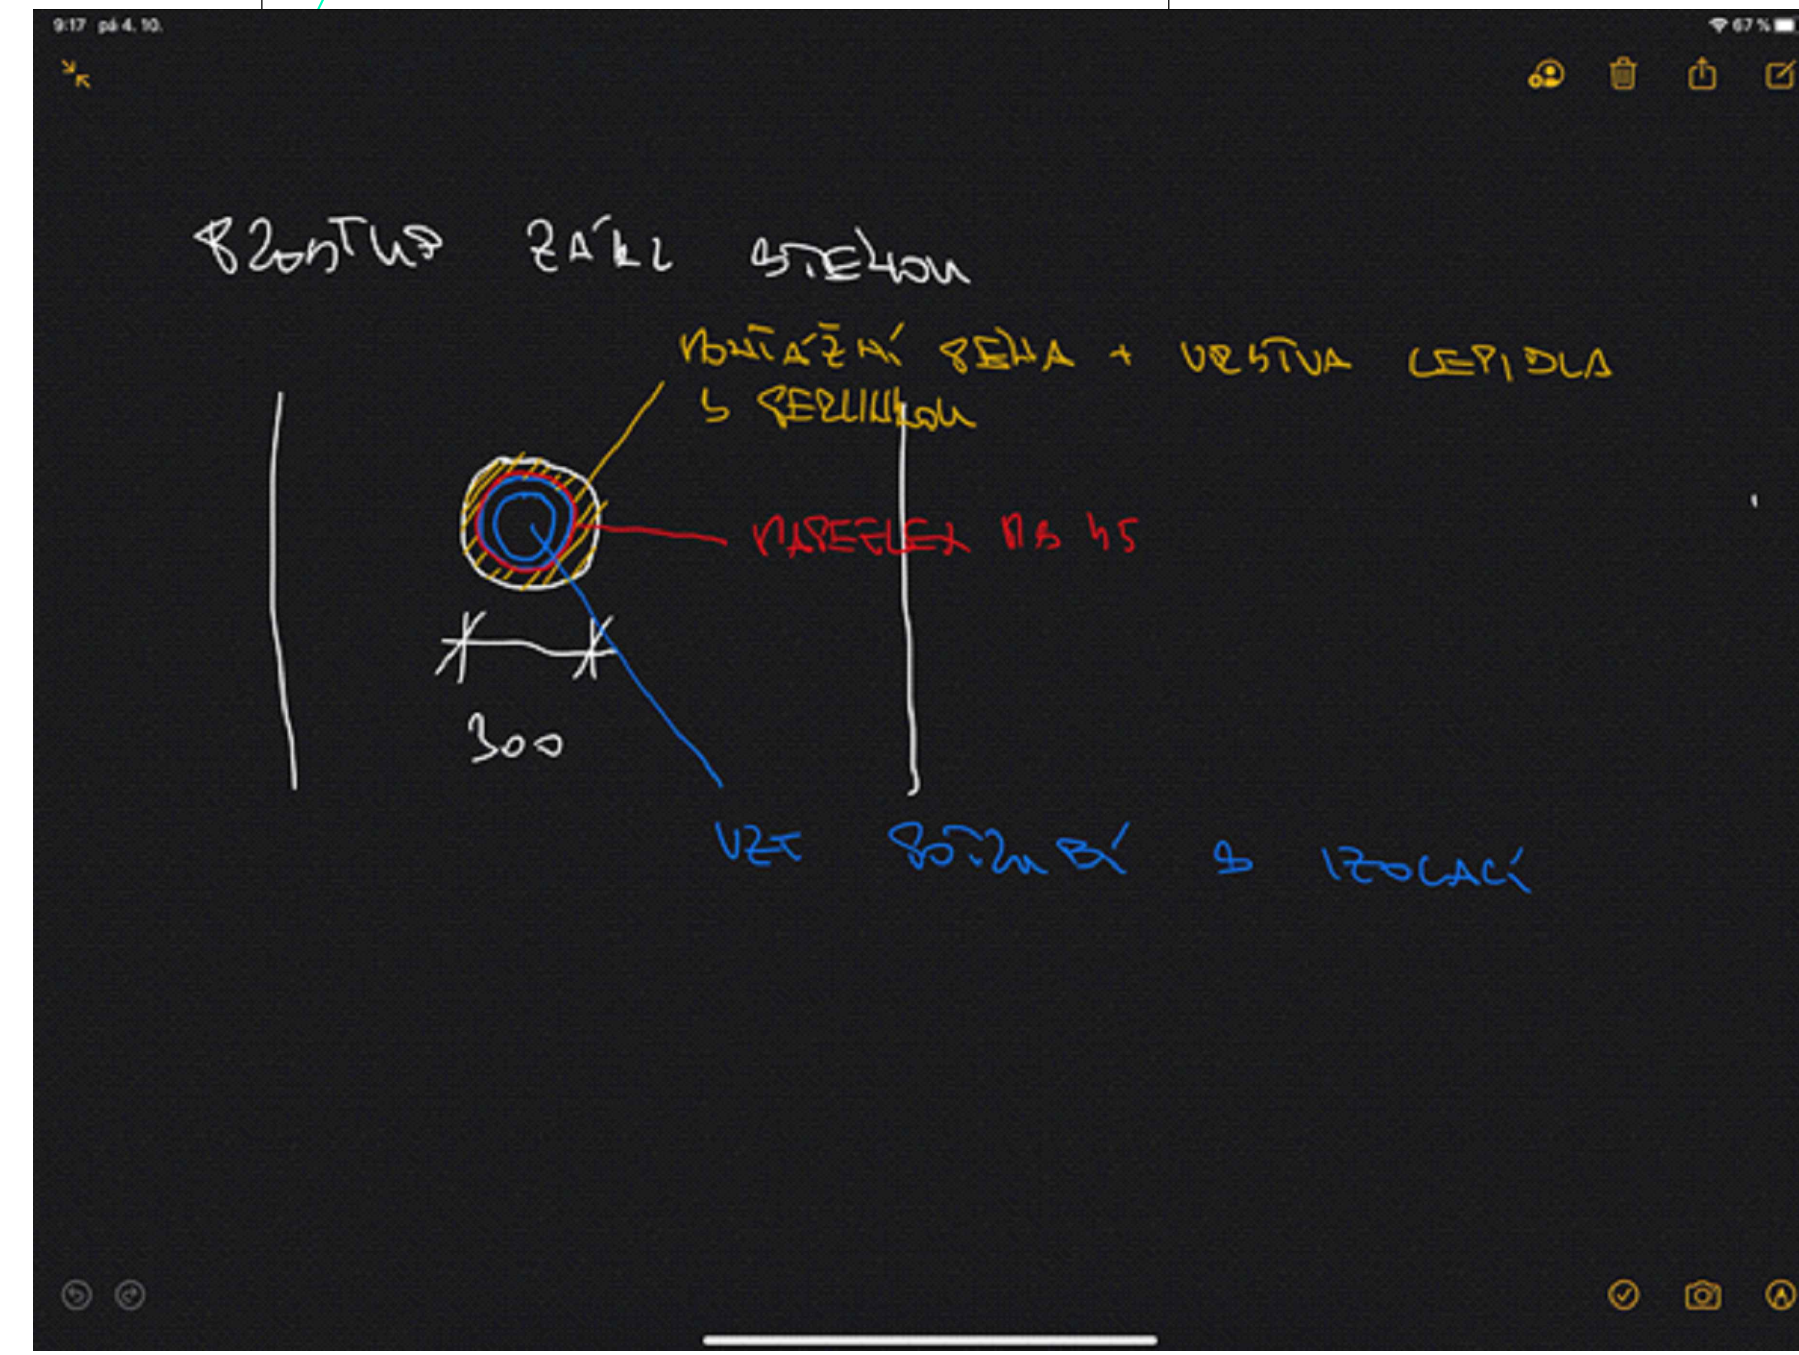 9:17 pá 4. 10.
67 %
PROSTUP ZÁKL STĚNOU
MONTÁŽNÍ PĚNA + VRSTVA LEPIDLA
S PERLINKOU
MAPEFLEX MS 45
300
VZT POTRUBÍ S IZOLACÍ